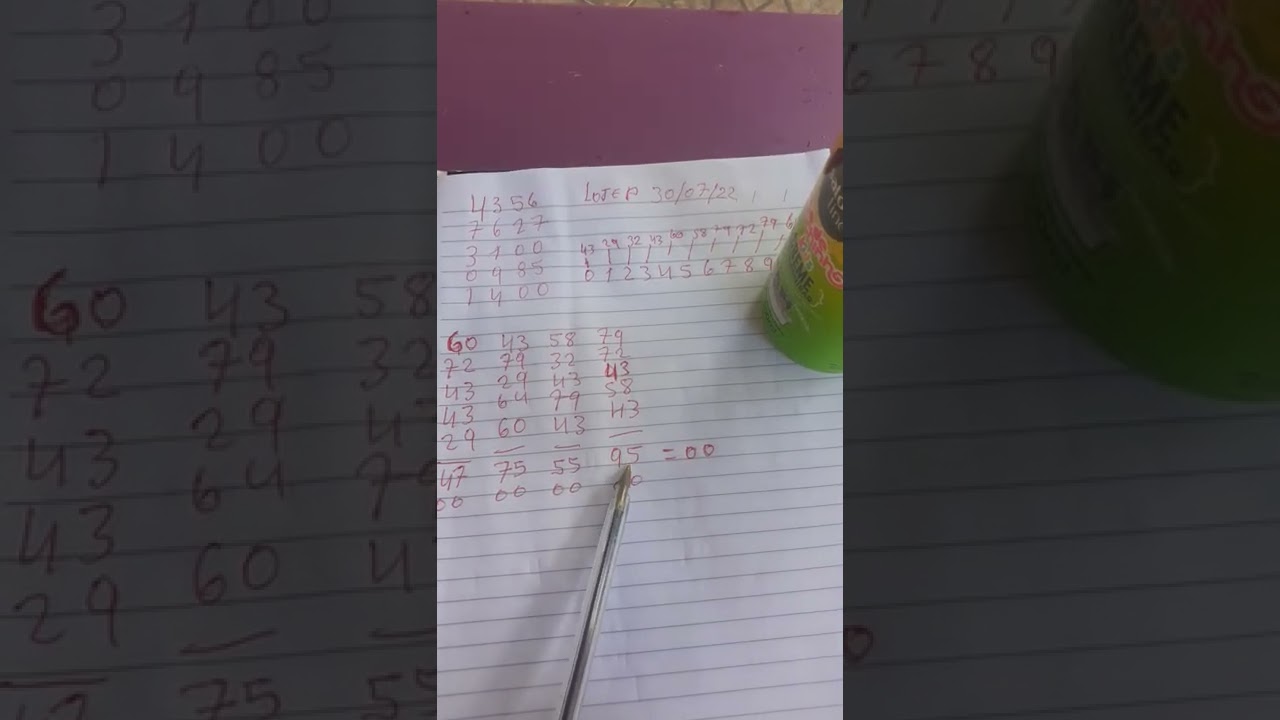 4356 LOTEP 30/07/22
7627
3100 43 29 32 43 60 58 79 72 79 6
0485 0 1 2 3 4 5 6 7 8 9
1400
60 43 58 79
72 79 32 72
43 29 43 43
43 64 79 58
29 60 43 43
47 75 55 95 = 00
00 00 00